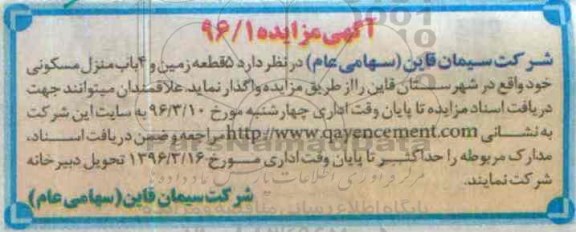 آگهی مزایده ۹۶/۱
شرکت سیمان قاین (سهامی عام) در نظر دارد ۵ قطعه زمین و ۴ باب منزل مسکونی
خود واقع در شهرستان قاین را از طریق مزایده واگذار نماید. علاقمندان میتوانند جهت
دریافت اسناد مزایده تا پایان وقت اداری چهارشنبه مورخ ۹۶/۳/۱۰ به سایت این شرکت
به نشانی http://www.qayencement.com مراجعه و ضمن دریافت اسناد،
مدارک مربوطه را حداکثر تا پایان وقت اداری مورخ ۱۳۹۶/۳/۱۶ تحویل دبیرخانه
شرکت نمایند.
شرکت سیمان قاین (سهامی عام)